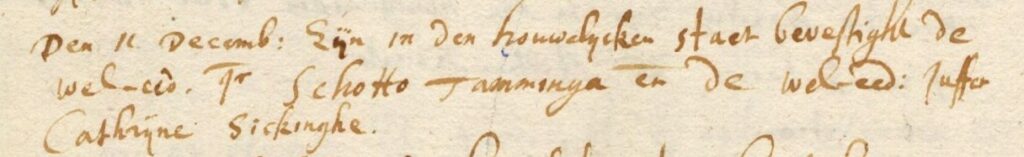 Den 11 Decemb: Zijn in den houwelijcken staet bevestight de
wel-eed. Jr Schotto Tamminga en de wel-eed: Juffer
Cathrijne Sickinghe.